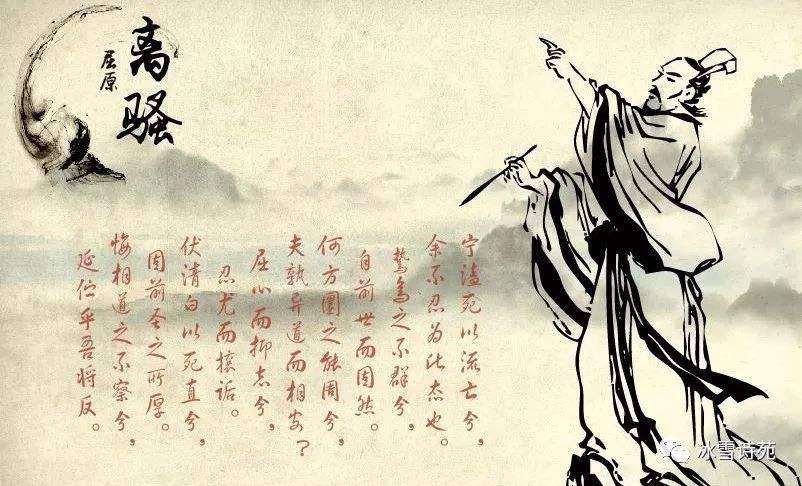 离骚
屈原
宁溘死以流亡兮，
余不忍为此态也。
鸷鸟之不群兮，
自前世而固然。
何方圜之能周兮，
夫孰异道而相安？
屈心而抑志兮，
忍尤而攘诟。
伏清白以死直兮，
固前圣之所厚。
悔相道之不察兮，
延伫乎吾将反。
冰雪诗苑